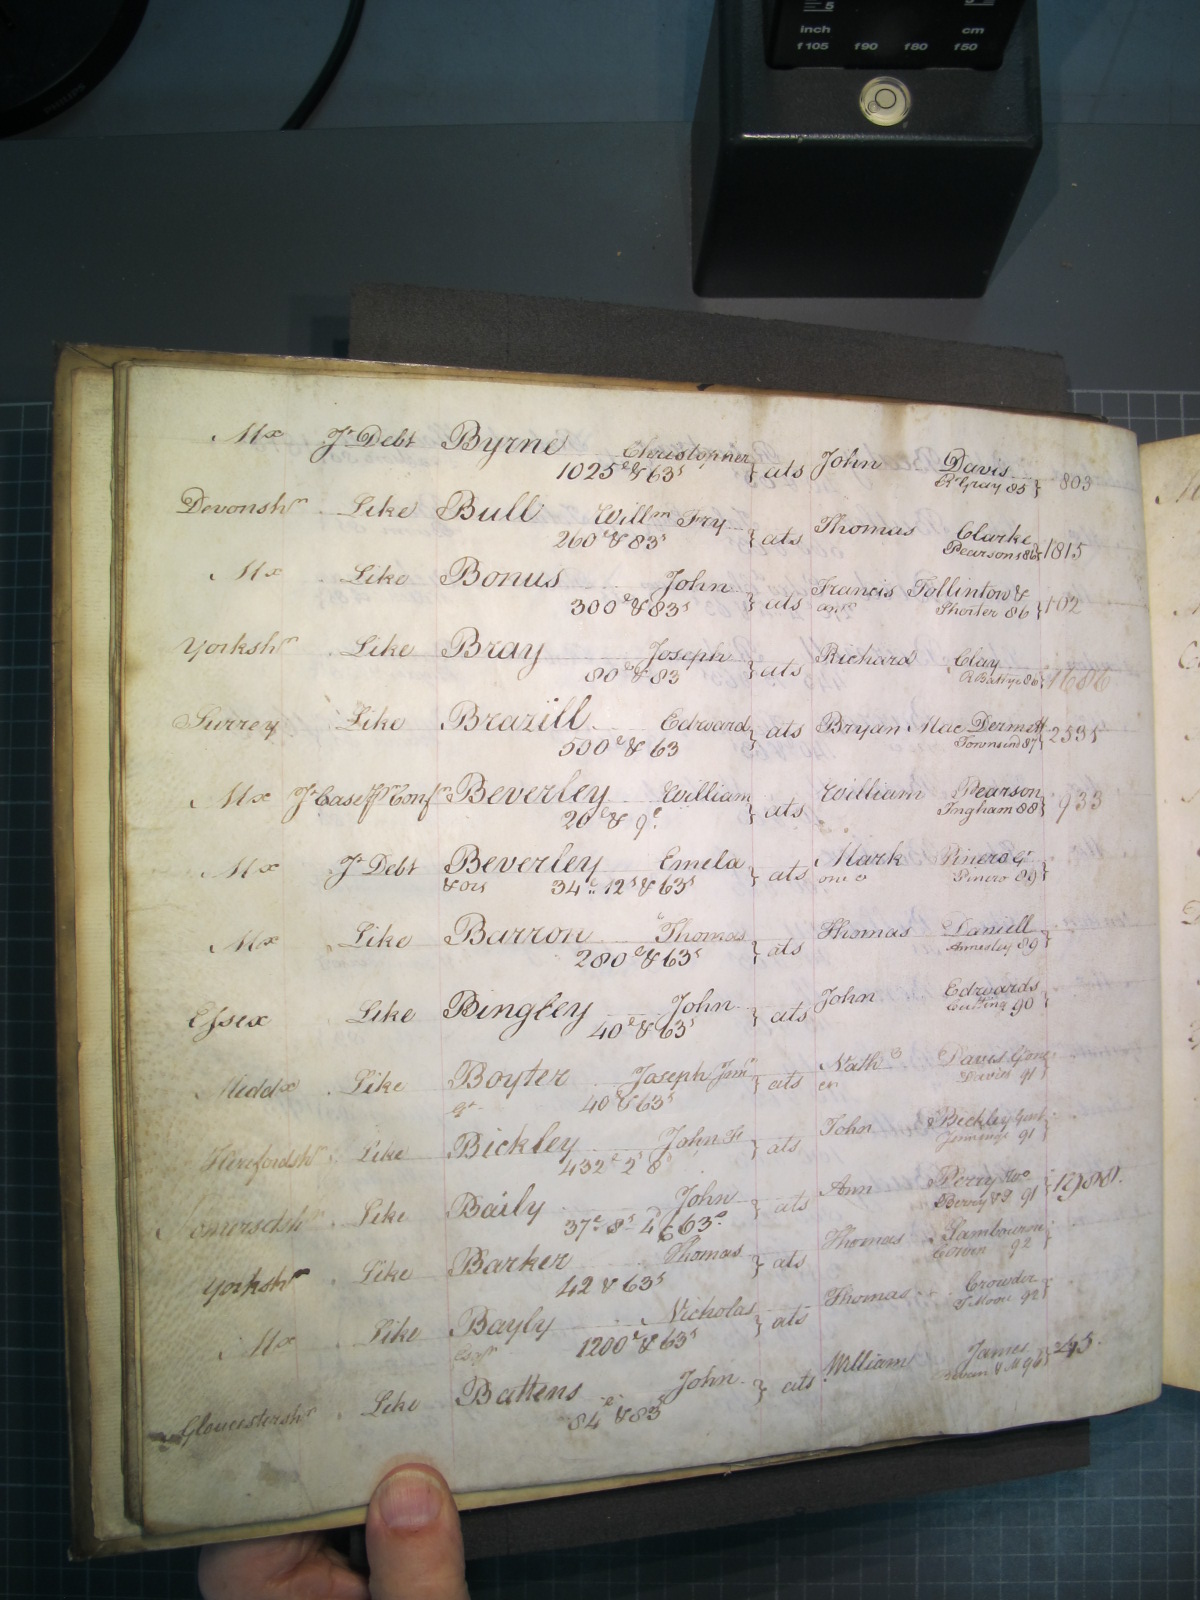 inch cm
f105 f90 f80 f50
PHILIPS
Mx Jt Debt Byrne Christopher } ats John Davis } 803
1025£ & 63s R Gray 85
Devonshr Like Bull Willm Fry } ats Thomas Clarke } 1815
260£ & 83s Pearsons 86
Mx Like Bonus John } ats Francis Tollinton & } 102
300£ & 83s anr Shorter 86
Yorkshr Like Bray Joseph } ats Richard Clay } 1686
80£ & 83s R Battye 86
Surrey Like Brazill Edward } ats Bryan Mac Dermott } 2535
500£ & 63 Townsend 87
Mx Jt Case Beverley William } ats William Pearson } 933
20£ & Ingham 88
Mx Jt Debt Beverley Emela } ats Mark Pinero Gt }
& ors 34£ 12s & 63s one &c Pinero 89
Mx Like Barron Thomas } ats Thomas Daniell }
280£ & 63s Annesley 89
Essex Like Bingley John } ats John Edwards }
40£ & 63s Cutting 90
Middx Like Boyter Joseph Junr } ats Nath Davies Gone
40£ & 63s Davies 91
Herefordshr Like Bickley John Jr } ats John Bickley Gent }
432£ 2s 8 Jennings 91
Somersetshr Like Baily John } ats Ann Perry } 1988.
37£ 8s 4 & 63s 91
Yorkshr Like Barker Thomas } ats Thomas Lambourn
42 & 63s Corbin 92
Mx Like Bayly Nicholas } ats Thomas Crowder
Esqr 1200£ & 63s Moore 92
Gloucestershr Like Battens John } ats William James } 245.
84£ & 83s